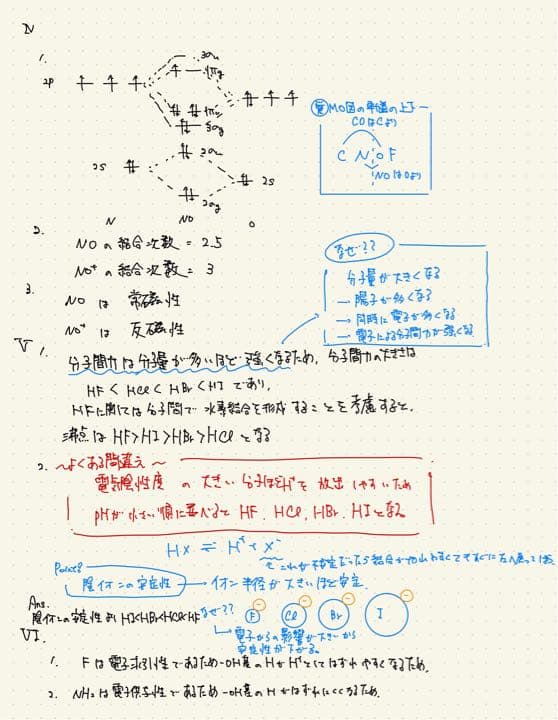 IV
1.
3σu
1πg
2p
1πu
3σg
2σu
2s
2s
2σg
N NO O
MO図の準位の上下
COはCより
C N O F
NOはOより
2.
NO の結合次数 = 2.5
NO⁺ の結合次数 = 3
3.
NO は 常磁性
NO⁺ は 反磁性
なぜ??
分子量が大きくなる
→ 陽子が多くなる
→ 同時に電子が多くなる
→ 電子による分子間力が強くなる
V 1.
分子間力は分子量が多いほど強くなるため、分子間力の大きさは
HF < HCl < HBr < HI であり、
HFに関しては分子間で水素結合を形成することを考慮すると、
沸点は HF>HI>HBr>HCl となる
2. 〜よくある間違え〜
電気陰性度 の 大きい分子ほどH⁺を 放出しやすいため
pHが小さい順に並べると HF, HCl, HBr, HI となる
HX ⇌ H⁺ + X⁻
これが不安定だったら結合が切れやすくてすぐに左へ戻って
Point!
陰イオンの安定性 → イオン半径が大きいほど安定.
Ans.
陰イオンの安定性より HI<HBr<HCl<HF
なぜ??
F Cl Br I
電子からの影響が大きいから
安定性が下がる。
VI.
1. Fは電子求引性であるため-OH基のHがH⁺としてはずれやすくなるため.
2. NH₂は電子供与性であるため-OH基のHがはずれにくくなるため.